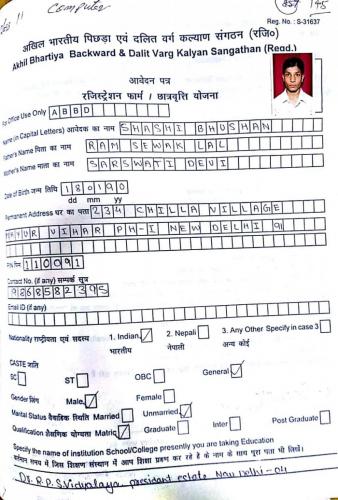 Computer
145
Reg. No. : S-31637
अखिल भारतीय पिछड़ा एवं दलित वर्ग कल्याण संगठन (रजि०)
Akhil Bhartiya Backward & Dalit Varg Kalyan Sangathan (Regd.)
आवेदन पत्र
रजिस्ट्रेशन फार्म / छात्रवृत्ति योजना
For Office Use Only ABBD
Name (in Capital Letters) आवेदक का नाम SHASHI BHUSHAN
Father's Name पिता का नाम RAM SEWAK LAL
Mother's Name माता का नाम SARSWATI DEVI
Date of Birth जन्म तिथि 180190
dd mm yy
Permanent Address घर का पता 234 CHILLA VILLAGE
MAYUR VIHAR PH-I NEW DELHI 91
PIN पिन 110091
Contact No. (if any) सम्पर्क सूत्र
9868582395
Email ID (if any)
Nationality राष्ट्रीयता एवं सदस्य 1. Indian 2. Nepali 3. Any Other Specify in case 3
भारतीय नेपाली अन्य कोई
CASTE जाति
SC ST OBC General
Gender लिंग Male Female
Marital Status वैवाहिक स्थिति Married Unmarried
Qualification शैक्षणिक योग्यता Matric Graduate Inter Post Graduate
Specify the name of institution School/College presently you are taking Education
वर्तमान समय में जिस शिक्षण संस्थान में आप शिक्षा प्राप्त कर रहे हैं के नाम के साथ पूरा पता भी लिखें।
Dr. R.P.S. Vidyalaya president estate New Delhi-04